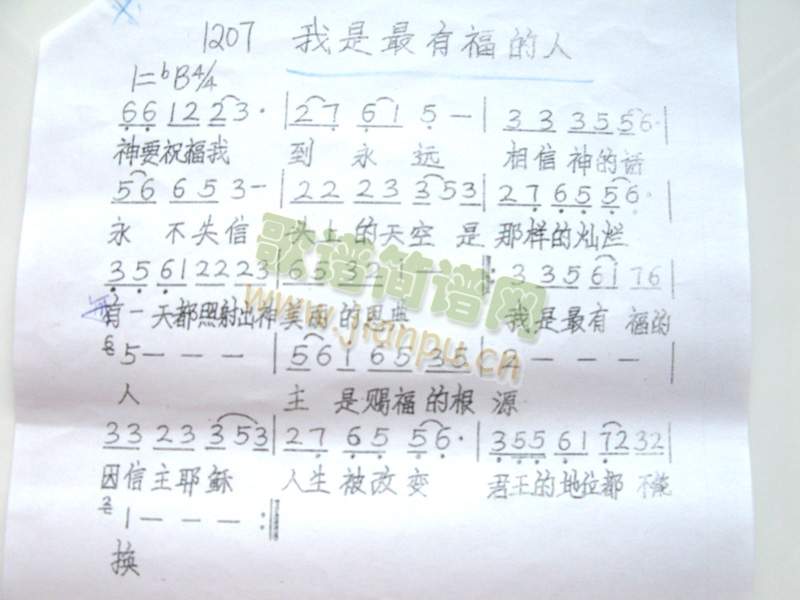 1207 我是最有福的人
1=ᵇB4/4
6 6 1 2 2 3 · | 2 7 6 1 5 — | 3 3 3 5 5 6 ·
神要祝福我 到 永 远 相信 神的话
5 6 6 5 3 — | 2 2 2 3 3 5 3 | 2 7 6 5 5 6 · |
永 不失信 头上的天空 是 那样的灿烂
3 5 6 1 2 2 2 3 | 6 5 3 2 1 — — 3 3 5 6 1 7 6 |
有一天都照射出神美丽的恩典 我是最有 福的
5 — — — | 5 6 1 6 5 3 5 | 2 — — — |
人 主 是赐福的根 源
3 3 2 3 3 5 3 | 2 7 6 5 5 6 · | 3 5 5 6 1 7 2 3 2 |
因信主耶稣 人生 被改变 君王的地位都 不能
1 — — — :
换
歌谱简谱网
www.jianpu.cn